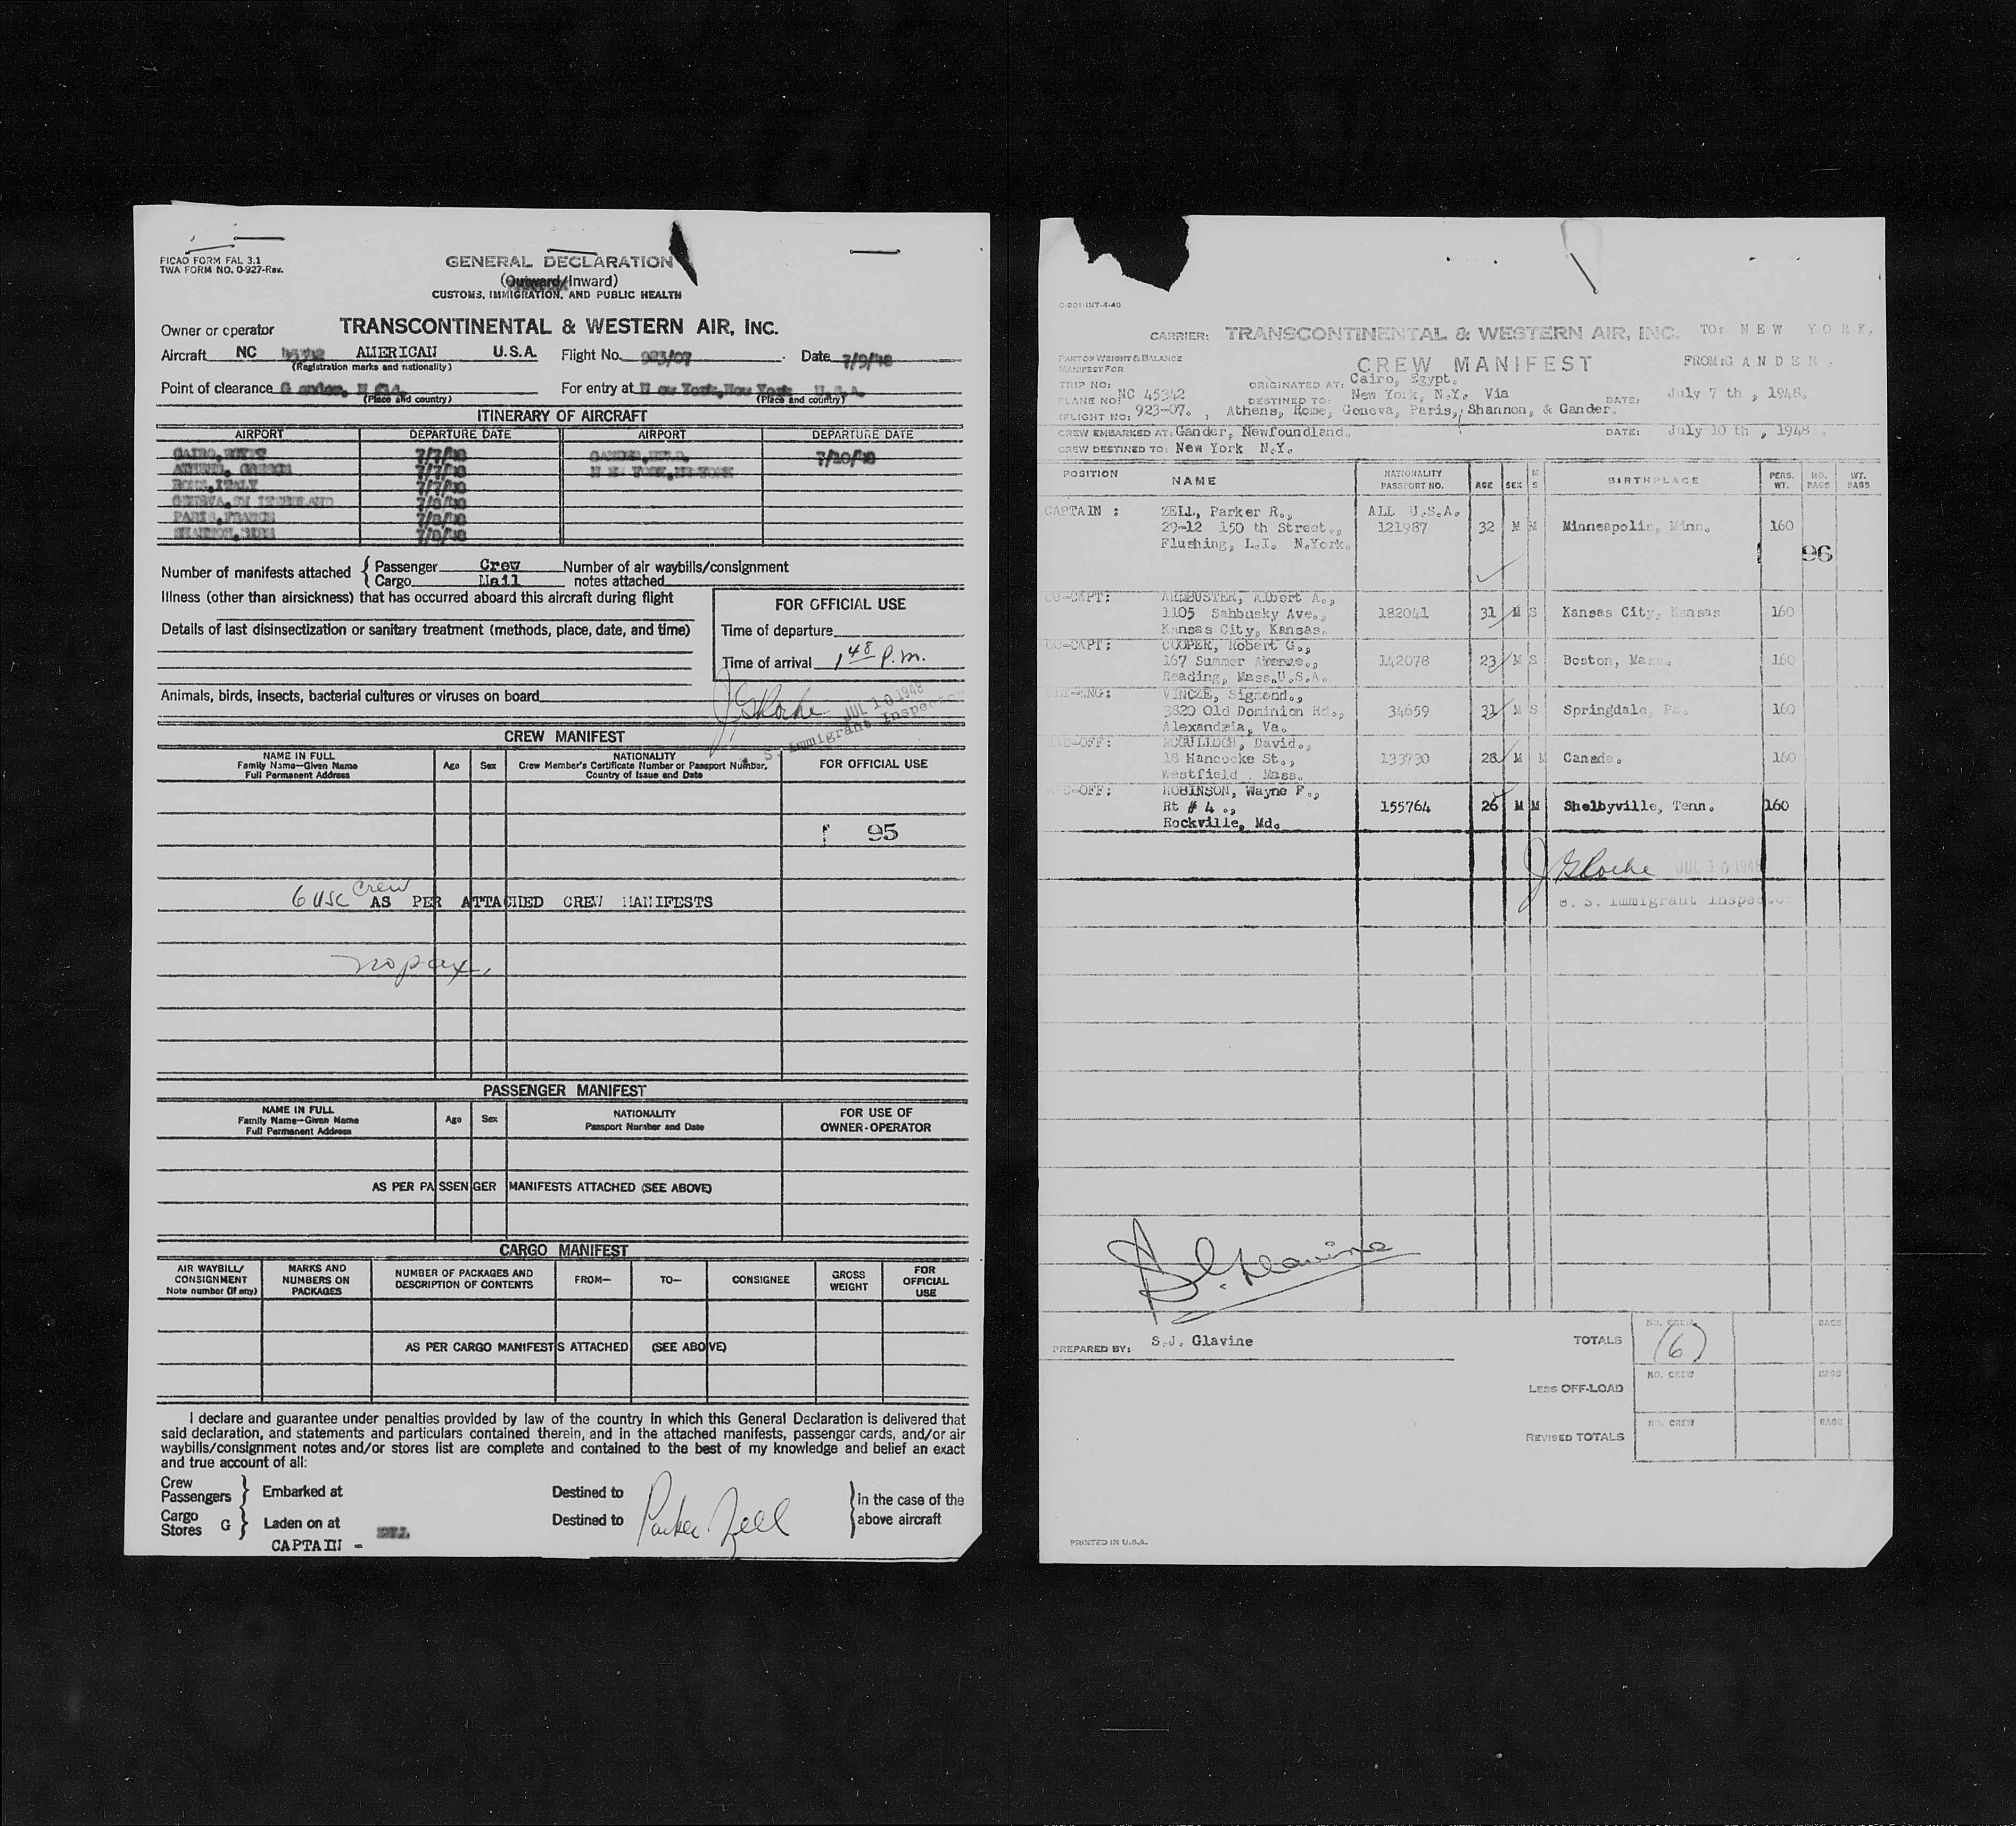 FICAO FORM FAL 3.1
TWA FORM NO. O-927-Rev.
GENERAL DECLARATION
(Outward/Inward)
CUSTOMS, IMMIGRATION, AND PUBLIC HEALTH
Owner or operator TRANSCONTINENTAL & WESTERN AIR, INC.
Aircraft NC 45342 AMERICAN U.S.A. Flight No. 923/07 Date 7/9/48
(Registration marks and nationality)
Point of clearance G ander, N fld. For entry at N ew York,New York U.S.A.
(Place and country) (Place and country)
ITINERARY OF AIRCRAFT
AIRPORT DEPARTURE DATE AIRPORT DEPARTURE DATE
CAIRO,EGYPT 7/7/48 GANDER,NFLD. 7/10/48
ATHENS, GREECE 7/7/48 N EW YORK,NEWYORK
ROME,ITALY 7/7/48
GENEVA,SW ITZERLAND 7/8/48
PARIS,FRANCE 7/8/48
SHANNON,EIRE 7/8/48
Number of manifests attached { Passenger Crew Number of air waybills/consignment
Cargo Mail notes attached
Illness (other than airsickness) that has occurred aboard this aircraft during flight
Details of last disinsectization or sanitary treatment (methods, place, date, and time)
FOR OFFICIAL USE
Time of departure
Time of arrival 1 48 P.m.
Animals, birds, insects, bacterial cultures or viruses on board
JUL 10 1948
S. Immigrant Inspector
CREW MANIFEST
NAME IN FULL
Family Name—Given Name
Full Permanent Address
Age Sex
NATIONALITY
Crew Member's Certificate Number or Passport Number,
Country of Issue and Date
FOR OFFICIAL USE
95
6 USC Crew AS PER ATTACHED CREW MANIFESTS
no pax.
PASSENGER MANIFEST
NAME IN FULL
Family Name—Given Name
Full Permanent Address
Age Sex
NATIONALITY
Passport Number and Date
FOR USE OF
OWNER-OPERATOR
AS PER PASSENGER MANIFESTS ATTACHED (SEE ABOVE)
CARGO MANIFEST
AIR WAYBILL/
CONSIGNMENT
Note number (if any)
MARKS AND
NUMBERS ON
PACKAGES
NUMBER OF PACKAGES AND
DESCRIPTION OF CONTENTS
FROM— TO— CONSIGNEE
GROSS
WEIGHT
FOR
OFFICIAL
USE
AS PER CARGO MANIFESTS ATTACHED (SEE ABOVE)
I declare and guarantee under penalties provided by law of the country in which this General Declaration is delivered that
said declaration, and statements and particulars contained therein, and in the attached manifests, passenger cards, and/or air
waybills/consignment notes and/or stores list are complete and contained to the best of my knowledge and belief an exact
and true account of all:
Crew
Passengers } Embarked at Destined to } in the case of the
Cargo
Stores G } Laden on at Destined to above aircraft
Parker Zell
CAPTAIN - ZELL
O-901-INT-4-46
CARRIER: TRANSCONTINENTAL & WESTERN AIR, INC. TO: N E W Y O R K.
PART OF WEIGHT & BALANCE
MANIFEST FOR
CREW MANIFEST FROM: G A N D E R .
TRIP NO:
PLANE NO: NC 45342
FLIGHT NO: 923-07. ,
ORIGINATED AT: Cairo, Egypt.
DESTINED TO: New York, N.Y. Via
Athens, Rome, Geneva, Paris, Shannon, & Gander.
DATE: July 7 th , 1948.
CREW EMBARKED AT: Gander, Newfoundland. DATE: July 10 th , 1948 .
CREW DESTINED TO: New York N.Y.
POSITION NAME NATIONALITY PASSPORT NO. AGE SEX M S BIRTHPLACE PERS. WT. NO. BAGS WT. BAGS
CAPTAIN : ZELL, Parker R., ALL U.S.A.
29-12 150 th Street., 121987 32 M M Minneapolis, Minn. 160
Flushing, L.I. N.York.
96
CO-CAPT: ARBUSTER, Albert A.,
1105 Sahbusky Ave., 182041 31 M S Kansas City, Kansas 160
Kansas City, Kansas.
CO-CAPT: COOPER, Robert G.,
167 Summer Avenue., 142078 23 M S Boston, Mass. 160
Reading, Mass.U.S.A.
ENG: VINCZE, Sigmond.,
3820 Old Dominion Rd., 34659 31 M S Springdale, Pa. 160
Alexandria, Va.
-OFF: MCCULLOCH, David.,
18 Hancocke St., 133730 28 M M Canada. 160
Westfield . Mass.
-OFF: ROBINSON, Wayne F.,
Rt # 4 ., 155764 26 M M Shelbyville, Tenn. 160
Rockville, Md.
JUL 10 1948
U. S. Immigrant Inspector
S.J. Glavine
PREPARED BY: S.J. Glavine
TOTALS NO. CREW (6) BAGS
LESS OFF-LOAD NO. CREW BAGS
REVISED TOTALS NO. CREW BAGS
PRINTED IN U.S.A.